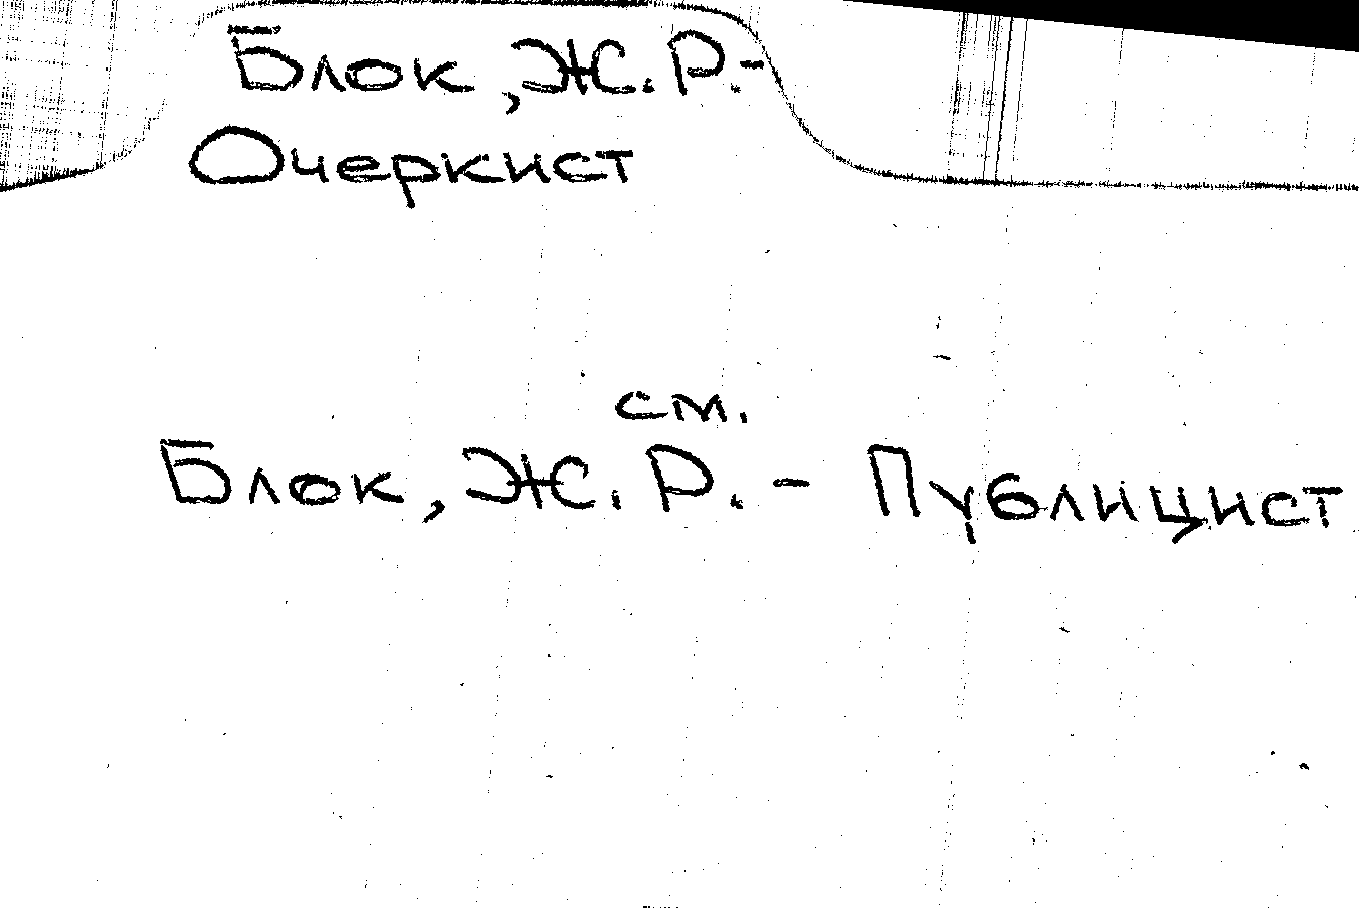 Блок, Ж. Р. -
Очеркист
см.
Блок, Ж. Р. - Публицист